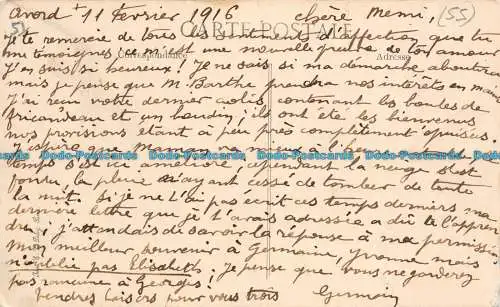 Avord 11 février 1916 Chère Mémi, (55)
CARTE POSTALE
Je te remercie de tous ces sentiments d'affection que tu
me témoignes ce m'est une nouvelle preuve de ton amour
Correspondance Adresse
J'en suis si heureux! Je ne sais si ma démarche aboutira
mais je pense que M. Barthe prendra nos intérêts en main
J'ai reçu votre dernier colis, contenant les boules de
fricandeau et un boudin; ils ont été les bienvenus
nos provisions étant à peu près complètement épuisées
J'espère que Maman va mieux à l'
temps s'est amélioré cependant la neige s'est
fondu, la pluie n'ayant cessé de tomber de toute
la nuit. Si je ne t'ai pas écrit ces temps derniers, ma
dernière lettre que je t'avais adressée a dû te l'appren
dre; j'attendais du savoir la réponse à ma permission
Mon meilleur souvenir à Germaine, Yvonne mais
n'oublie pas Elisabeth. Je pense que vous ne garderez
pas rancune à Georges.
tendres baisers pour vous trois Germain
Dodo-Postcards Dodo-Postcards Dodo-Postcards Dodo-Postcards Dodo-Postcards